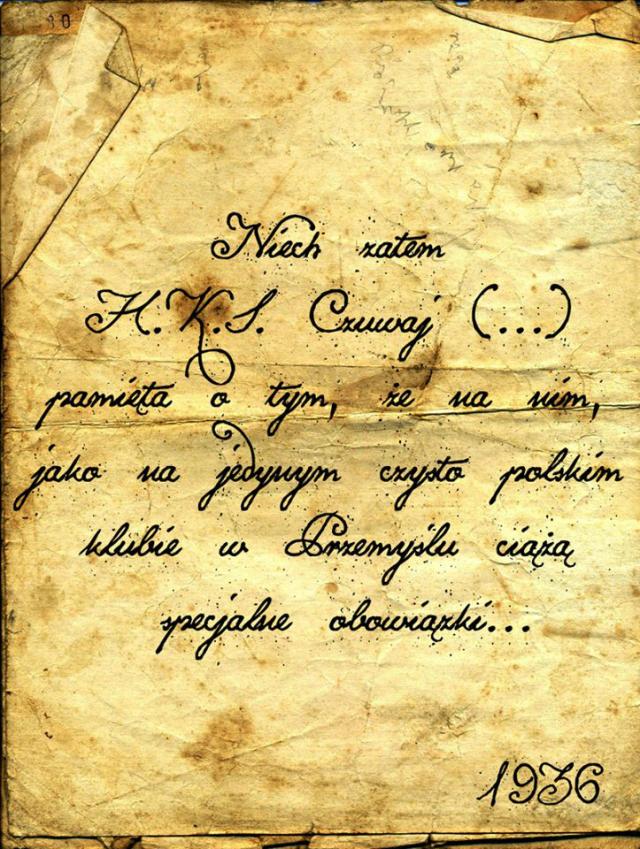 10
Niech zatem
H.K.S. Czuwaj (...)
pamięta o tym, że na nim,
jako na jedynym czysto polskim
klubie w Przemyślu ciążą
specjalne obowiązki...
1936